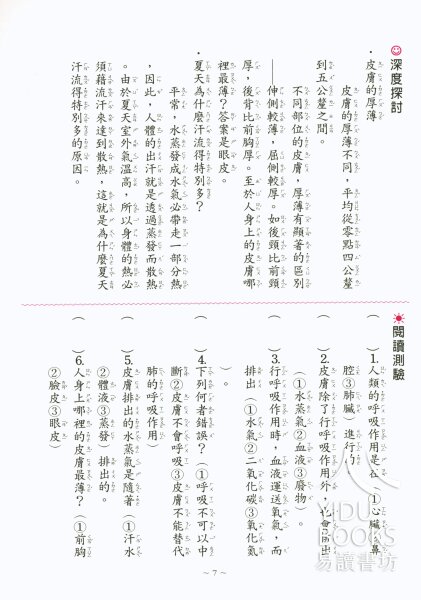 深度探討
・皮膚的厚薄
皮膚的厚薄不同，平均從零點四公釐
到五公釐之間。
不同部位的皮膚，厚薄有顯著的區別
——伸側較薄，屈側較厚。如後頸比前頸
厚，後背比前胸厚。至於人身上的皮膚哪
裡最薄？答案是眼皮。
・夏天為什麼汗流得特別多？
平常，水蒸發成水氣必帶走一部分熱
，因此，人體的出汗就是透過蒸發而散熱
。由於夏天室外氣溫高，所以身體的熱必
須藉流汗來達到散熱，這就是為什麼夏天
汗流得特別多的原因。
閱讀測驗
（ ）1.人類的呼吸作用是在（①心臟②鼻
腔③肺臟）進行的。
（ ）2.皮膚除了行呼吸作用外，也會排出
（①水蒸氣②血液③廢物）。
（ ）3.行呼吸作用時，血液運送氧氣，而
排出（①水氣②二氧化碳③氧化氮
）。
（ ）4.下列何者錯誤？（①呼吸不可以中
斷②皮膚不會呼吸③皮膚不能替代
肺的呼吸作用）
（ ）5.皮膚排出的水蒸氣是隨著（①汗水
②體液③蒸發）排出的。
（ ）6.人身上哪裡的皮膚最薄？（①前胸
②臉皮③眼皮）
~7~
YIDU
BOOKS
易讀書坊